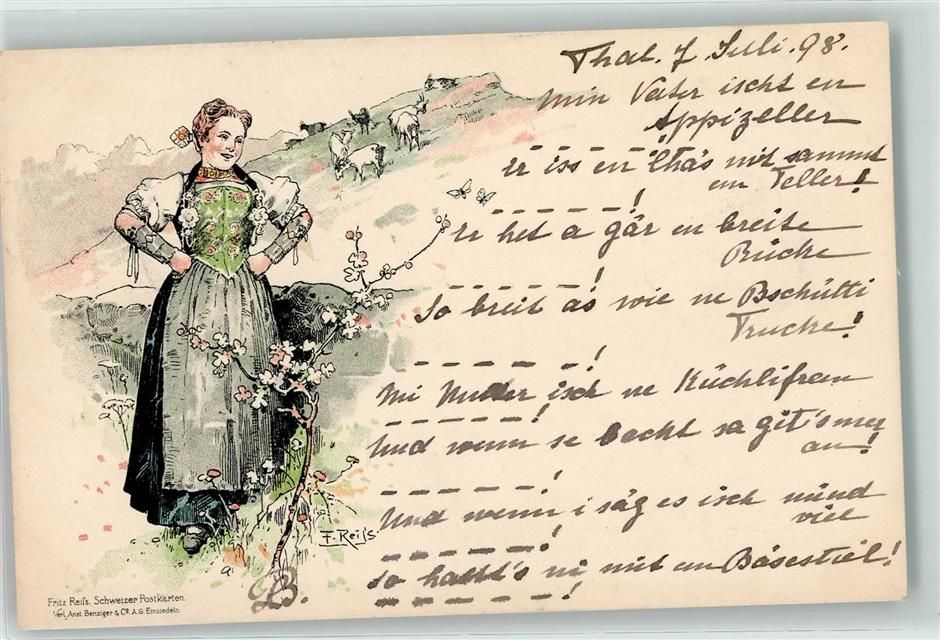 Thal. 7. Juli. 98.
Min Vater ischt en
Appizeller
Er iss en Chäs mit sammt
em Teller!
– – – – – – !
Er het a gär en breite
Rücke
– – – – – – !
So breit äs wie ne Bschütti
Trucke!
– – – – – – !
Mi Muder isch ne Küchlifrau
– – – – – – !
Und wenn se bacht sa git's mer
au!
– – – – – – !
Und wenn i säg es isch nünd
viel
– – – – – – !
so hatt's mi mit em Bäsestiel!
– – – – – – !
F. Reiss
B.
Fritz Reiß, Schweizer Postkarten.
Verl. Anst. Benziger & Co. A.G. Einsiedeln.